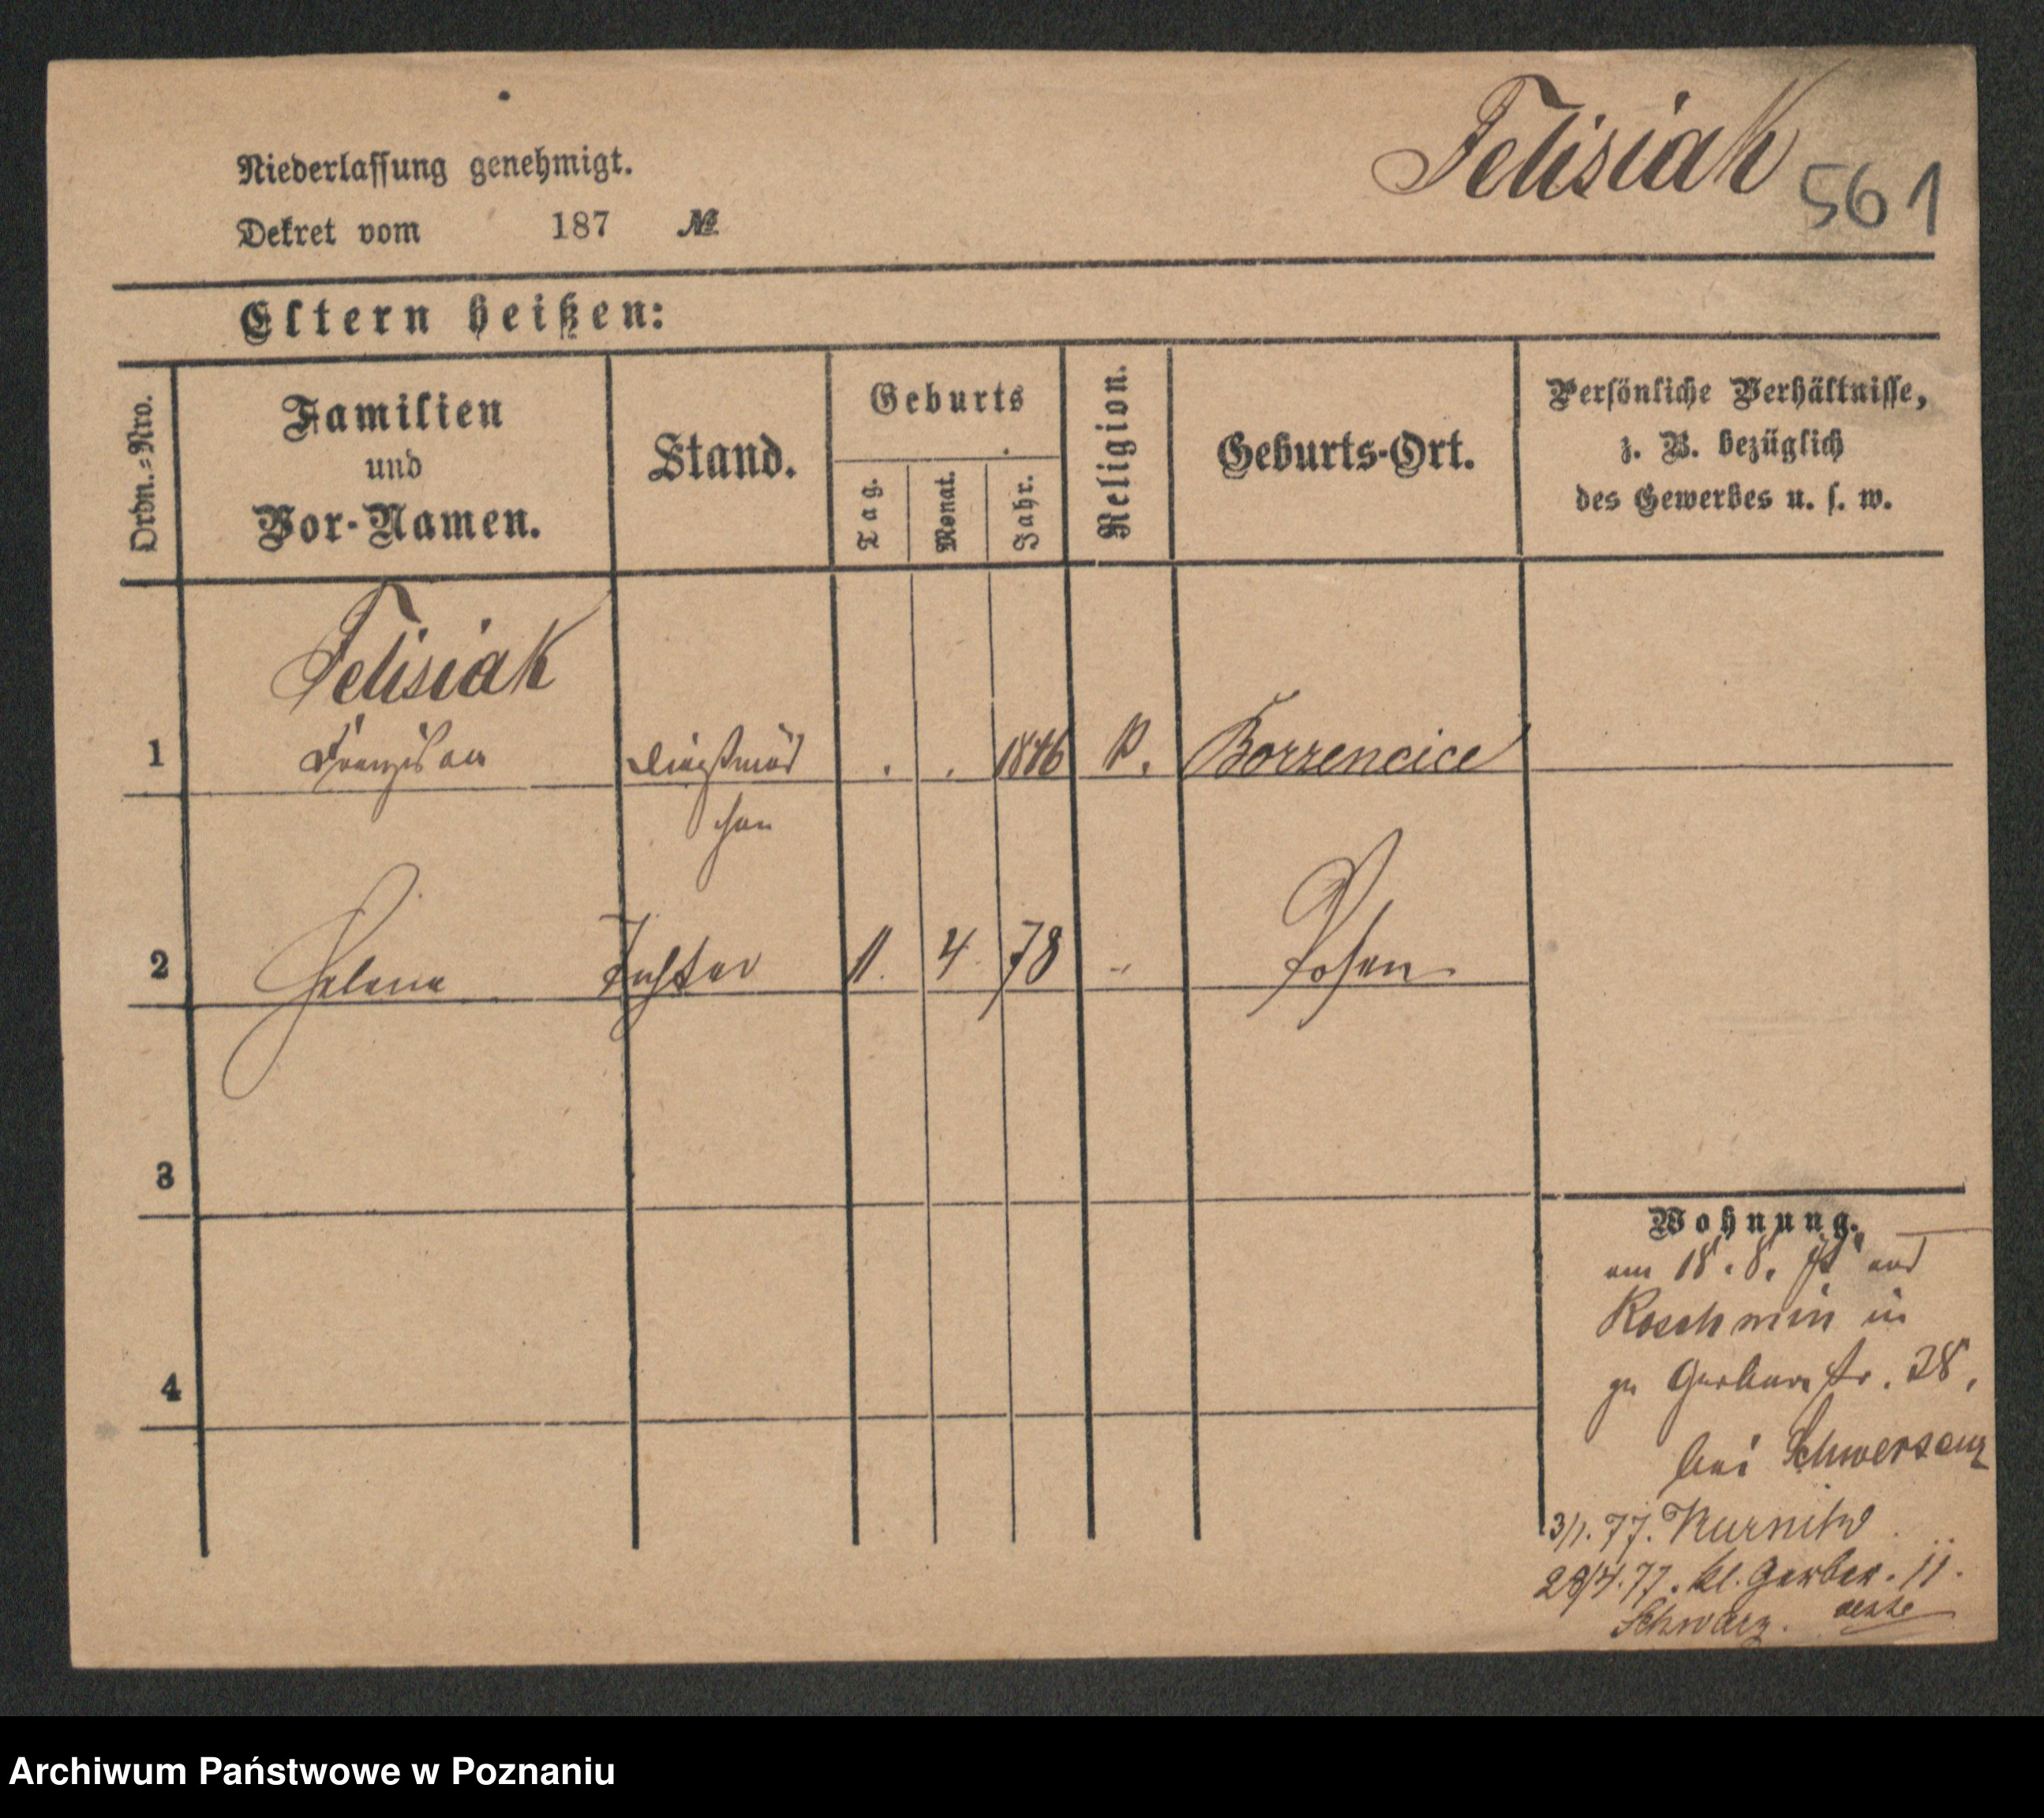 Felisiak
561
Niederlassung genehmigt.
Dekret vom 187 №
Eltern heißen:
Ordn.=Nro.
Familien
und
Vor-Namen.
Stand.
Geburts
Tag.
Monat.
Jahr.
Religion.
Geburts-Ort.
Persönliche Verhältnisse,
z. B. bezüglich
des Gewerbes u. s. w.
Felisiak
1 Dienstmäd . . K. Borzencice
chen
2 Helena Tochter 11. 4. 78 " Posen
3
4
Wohnung.
am 18. 8. aus
Koschmin in
zu Gerberstr. 28,
bei Schwersenz
3/1. 77. Kurnik
28/4. 77. kl. Gerber. 11.
Schwarz.
Archiwum Państwowe w Poznaniu